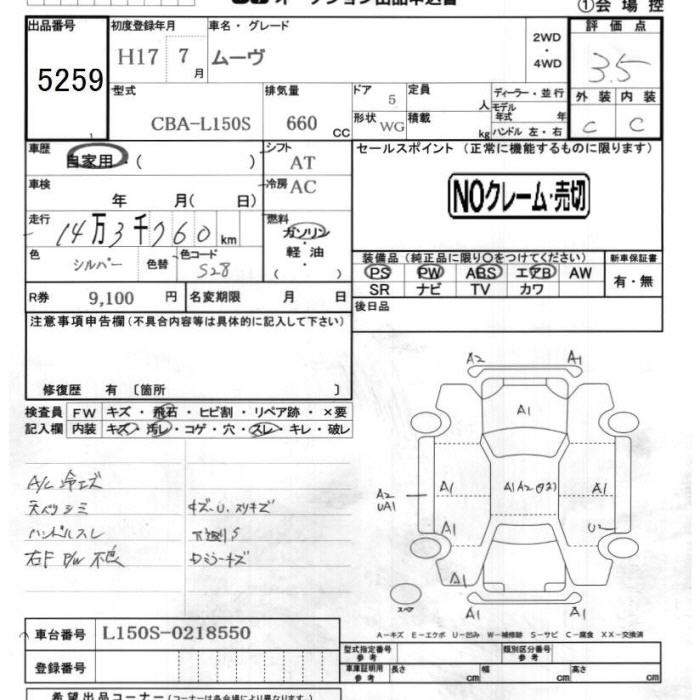 オークション出品申込書
①会場控
出品番号
5259
初度登録年月
H17 7月
車名・グレード
ムーヴ
2WD
・
4WD
評価点
3.5
外装 内装
C C
型式
CBA-L150S
排気量
660 CC
ドア 5
形状 WG
定員 人
積載 kg
ディーラー・並行
モデル年式 年
ハンドル 左・右
車歴
自家用・( )
シフト
AT
車検
年 月( 日)
冷房 AC
走行
14万3千760km
燃料
ガソリン
軽・油
( )
色
シルバー
色替
色コード
S28
R券 9,100 円
名変期限 月 日
セールスポイント (正常に機能するものに限ります)
NOクレーム・売切
装備品 (純正品に限り○をつけてください)
新車保証書
PS PW ABS エアB AW
SR ナビ TV カワ
有・無
後日品
注意事項申告欄 (不具合内容等は具体的に記入して下さい)
修復歴 有 〔箇所 〕
検査員 FW キズ・飛石・ヒビ割・リペア跡・×要
記入欄 内装 キズ・汚レ・コゲ・穴・スレ・キレ・破レ
A/C 冷エズ
天ベリ シミ
ハンドルスレ
右F P/W 不良
キズ・U、スリキズ
下廻りS
Dミラーキズ
A2 A1
A1
A2
UA1
A1
A1
A1
A1
U2
A1
A1
A1
スペア
A-キズ E-エクボ U-凹み W-補修跡 S-サビ C-腐食 XX-交換済
車台番号 L150S-0218550
登録番号
型式指定番号 参考
類別区分番号 参考
車庫証明用 参考
長さ cm
幅 cm
高さ cm
希望出品コーナー (コーナーは各会場により異なります。)